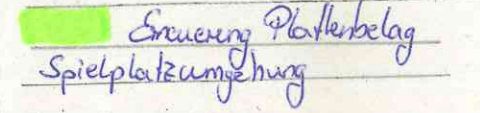 Erneuerung Plattenbelag
Spielplatzumgehung